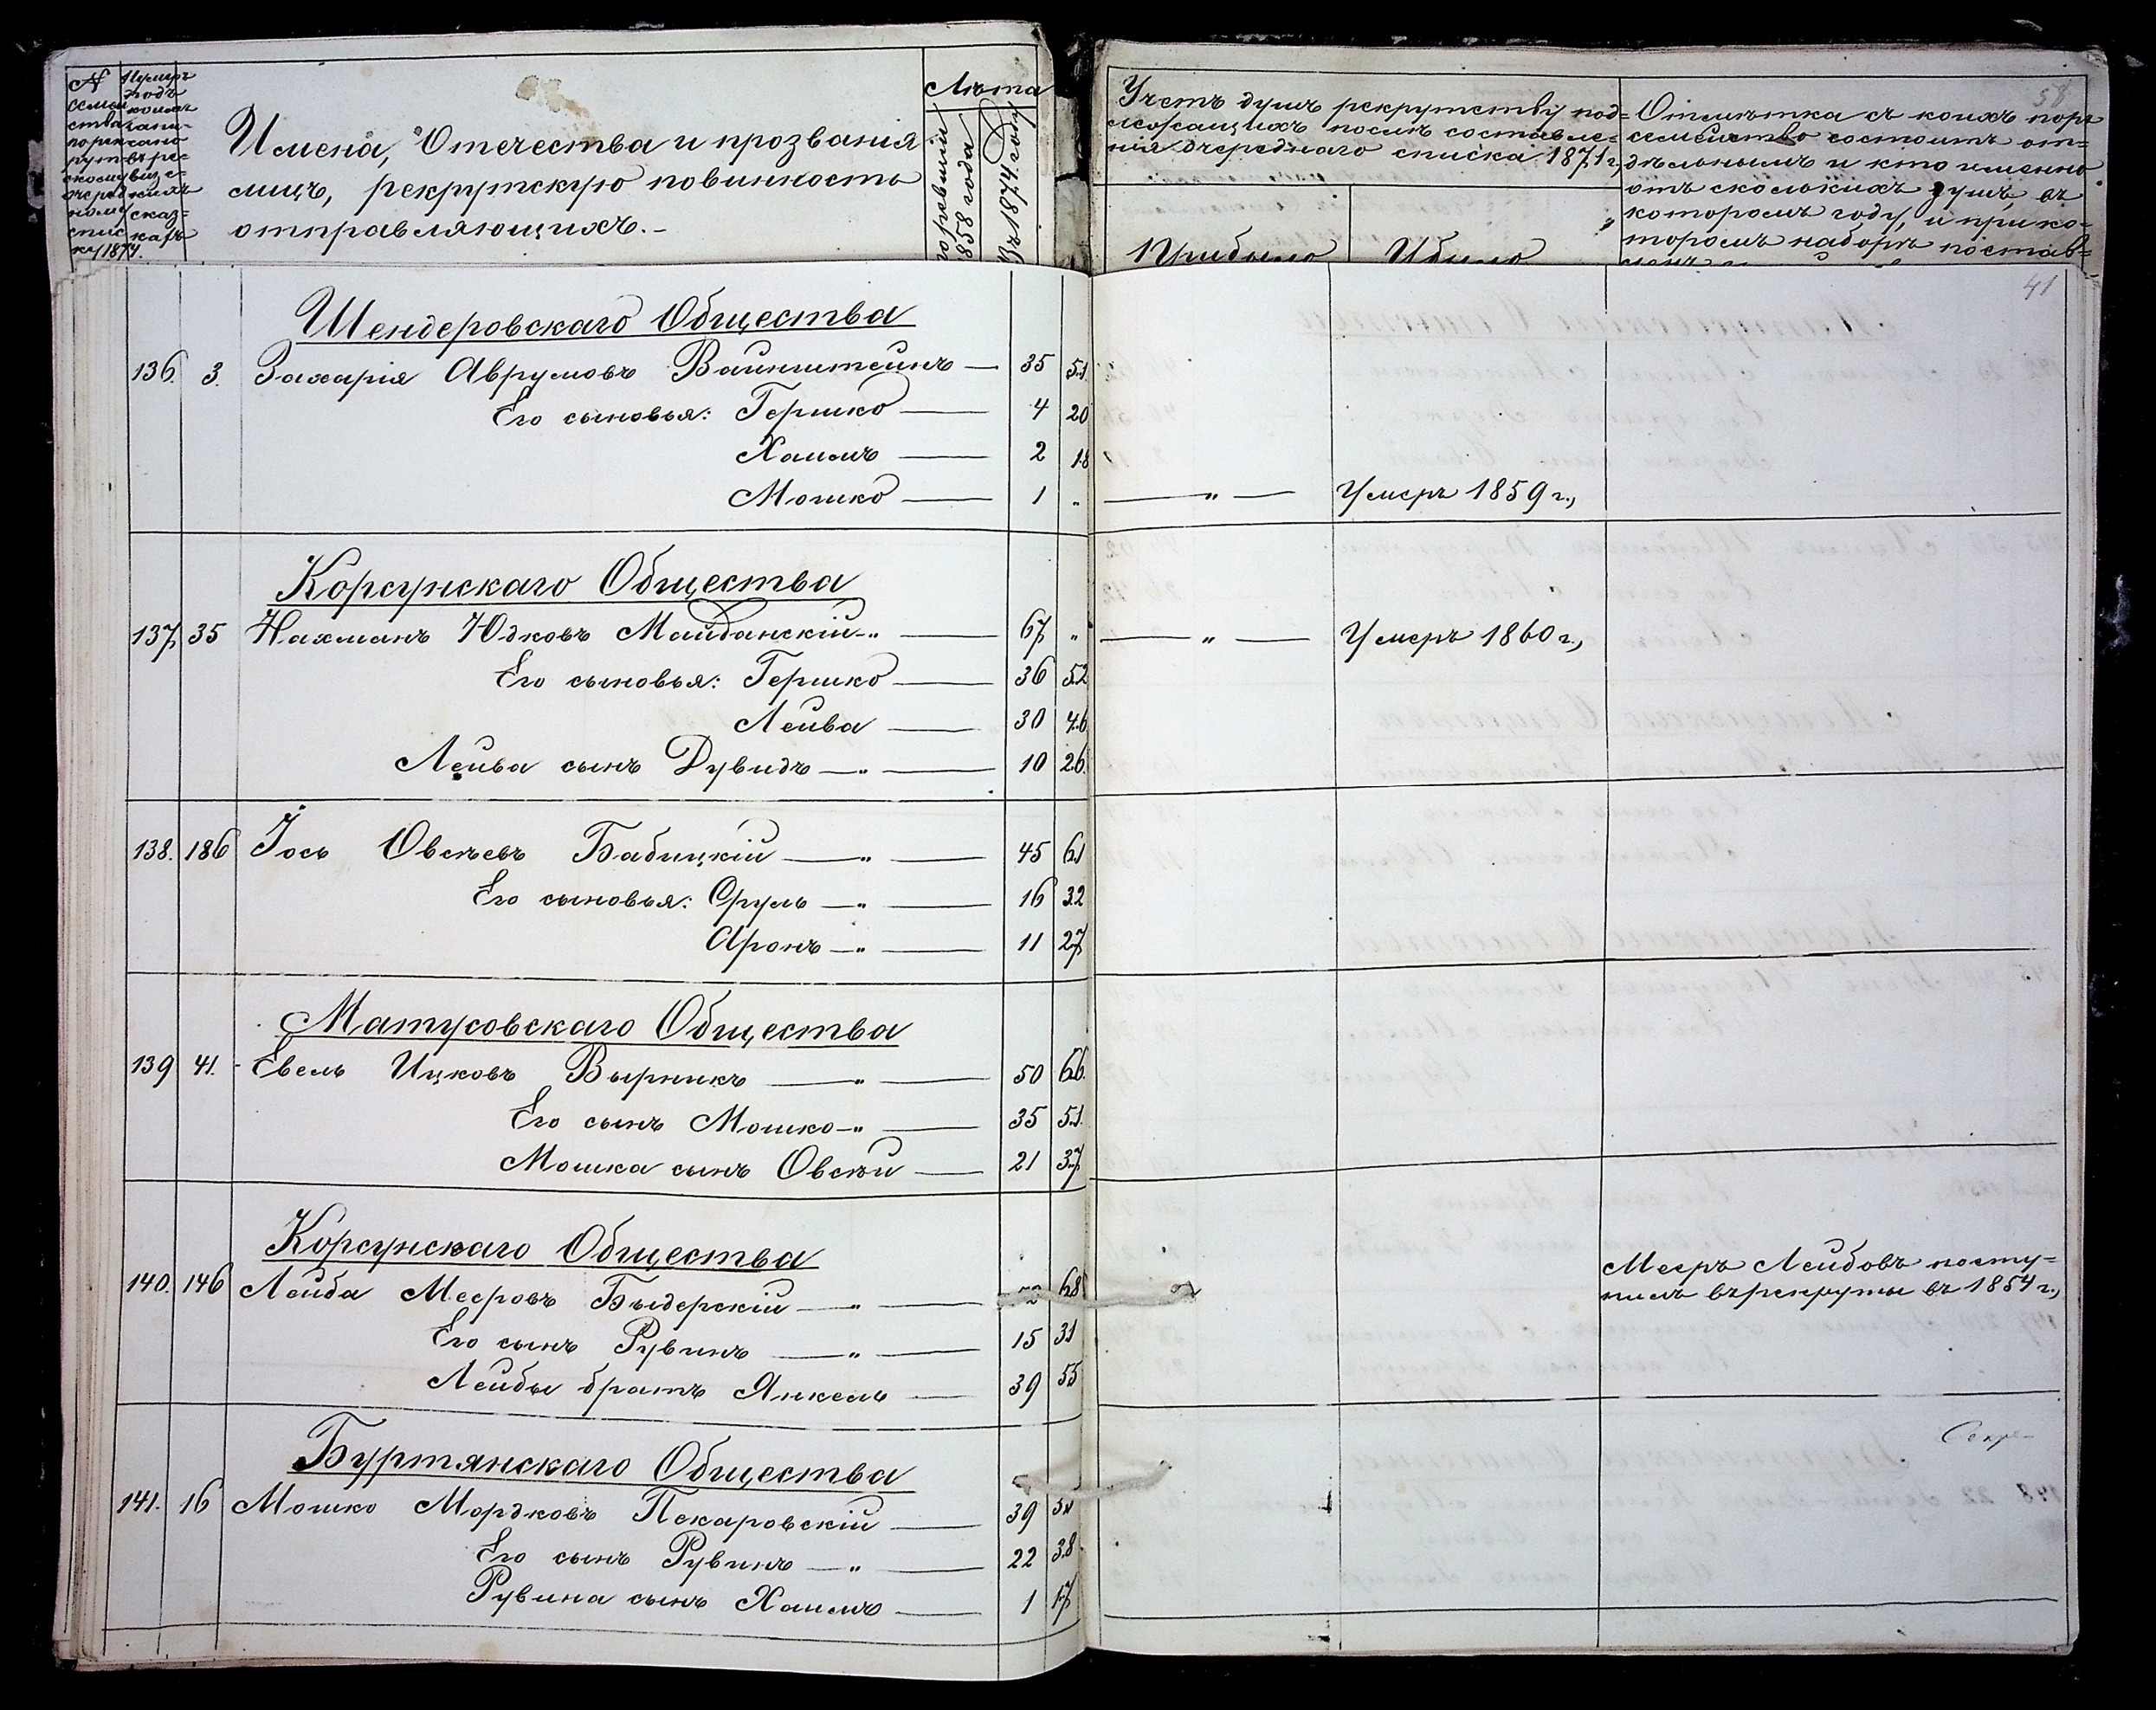 № семейства по рекрутскому очередному списку 1874.
Нумеръ подъ коимъ записано въ ревизскихъ сказкахъ
Имена, Отечества и прозванія
лицъ, рекрутскую повинность
отправляющихъ.-
Лѣта
по ревизіи 1858 года
Въ 1874 году
Учетъ душъ рекрутству под=
лежащихъ послѣ составле=
нія очереднаго списка 1871 г.,
Прибыло
Убыло
58
Отмѣтка съ коихъ поръ
семейство состоитъ от=
дѣльнымъ и кто именно
отъ сколькихъ душъ, въ
которомъ году, и при ко=
торомъ наборѣ постав=
ленъ
41
Шендеровскаго Общества
136. 3. Захарія Аврумовъ Вайнштейнъ — 35 51.
Его сыновья: Гершко — 4 20
Хаимъ — 2 18
Мошко — 1 „ — „ — Умеръ 1859 г.,
Корсунскаго Общества
137 35 Нахманъ Юдковъ Майданскій „ — 67 „ — „ — Умеръ 1860 г.,
Его сыновья: Гершко — 36 52
Лейва — 30 46
Лейва сынъ Дувидъ — „ — 10 26.
138. 186 Іось Овсѣевъ Бабицкій — „ — 45 61
Его сыновья: Сруль — „ — 16 32
Аронъ — „ — 11 27
Матусовскаго Общества
139 41. Евель Ицковъ Вырникъ — „ — 50 66.
Его сынъ Мошко — „ — 35 51.
Мошка сынъ Овсѣй — 21 37
Корсунскаго Общества
140. 146 Лейба Мееровъ Быдерскій — „ — 68
Мееръ Лейбовъ посту=
пилъ въ рекруты въ 1854 г.,
Его сынъ Рувинъ — „ — 15 31
Лейбы братъ Янкель — 39 55
Буртянскаго Общества
Секре
141. 16 Мошко Мордковъ Пекаровскій — 39
Его сынъ Рувинъ — „ — 22 38
Рувина сынъ Хаимъ — 1 17